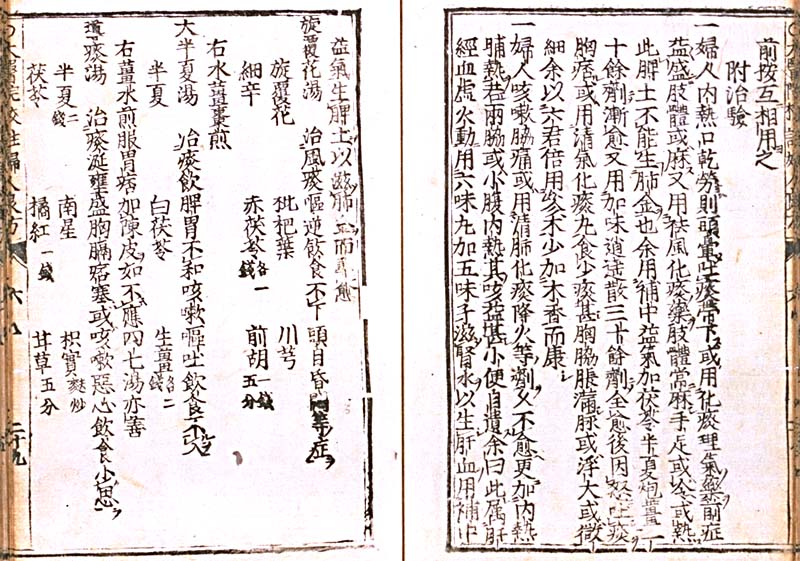 前按互相用之
附治驗
一婦人内熱口乾勞則頭暈吐痰帶下或用化痰理氣藥前症
益盛肢體或麻又用祛風化痰藥肢體常麻手足或冷或熱
此脾土不能生肺金也余用補中益氣加茯苓半夏炮薑二
十餘劑漸愈又用加味逍遥散三十餘劑全愈後因怒吐痰
胸痞或用清氣化痰丸食少痰甚胸脇脹滿脉或浮大或微
細余以六君倍用參朮少加木香而康
一婦人咳嗽脇痛或用清肺化痰降火等劑久不愈更加内熱
脯熱若兩脇或小腹内熱其咳益甚小便自遺余曰此属肝
經血虚火動用六味丸加五味子滋腎水以生肝血用補中
益氣生脾土以滋肺金而尋愈
旋覆花湯 治風痰嘔逆飲食不下頭目昏悶等症
旋覆花 枇杷葉 川芎
細辛 赤茯苓各一錢 前胡一錢五分
右水薑棗煎
大半夏湯 治痰飲脾胃不和咳嗽嘔吐飲食不入
半夏 白茯苓 生薑各二錢
右薑水煎服胃痞加陳皮如不應四七湯亦善
導痰湯 治痰涎壅盛胸膈痞塞或咳嗽惡心飲食少思
半夏二錢 南星 枳實麩炒
茯苓 橘紅一錢 甘草五分